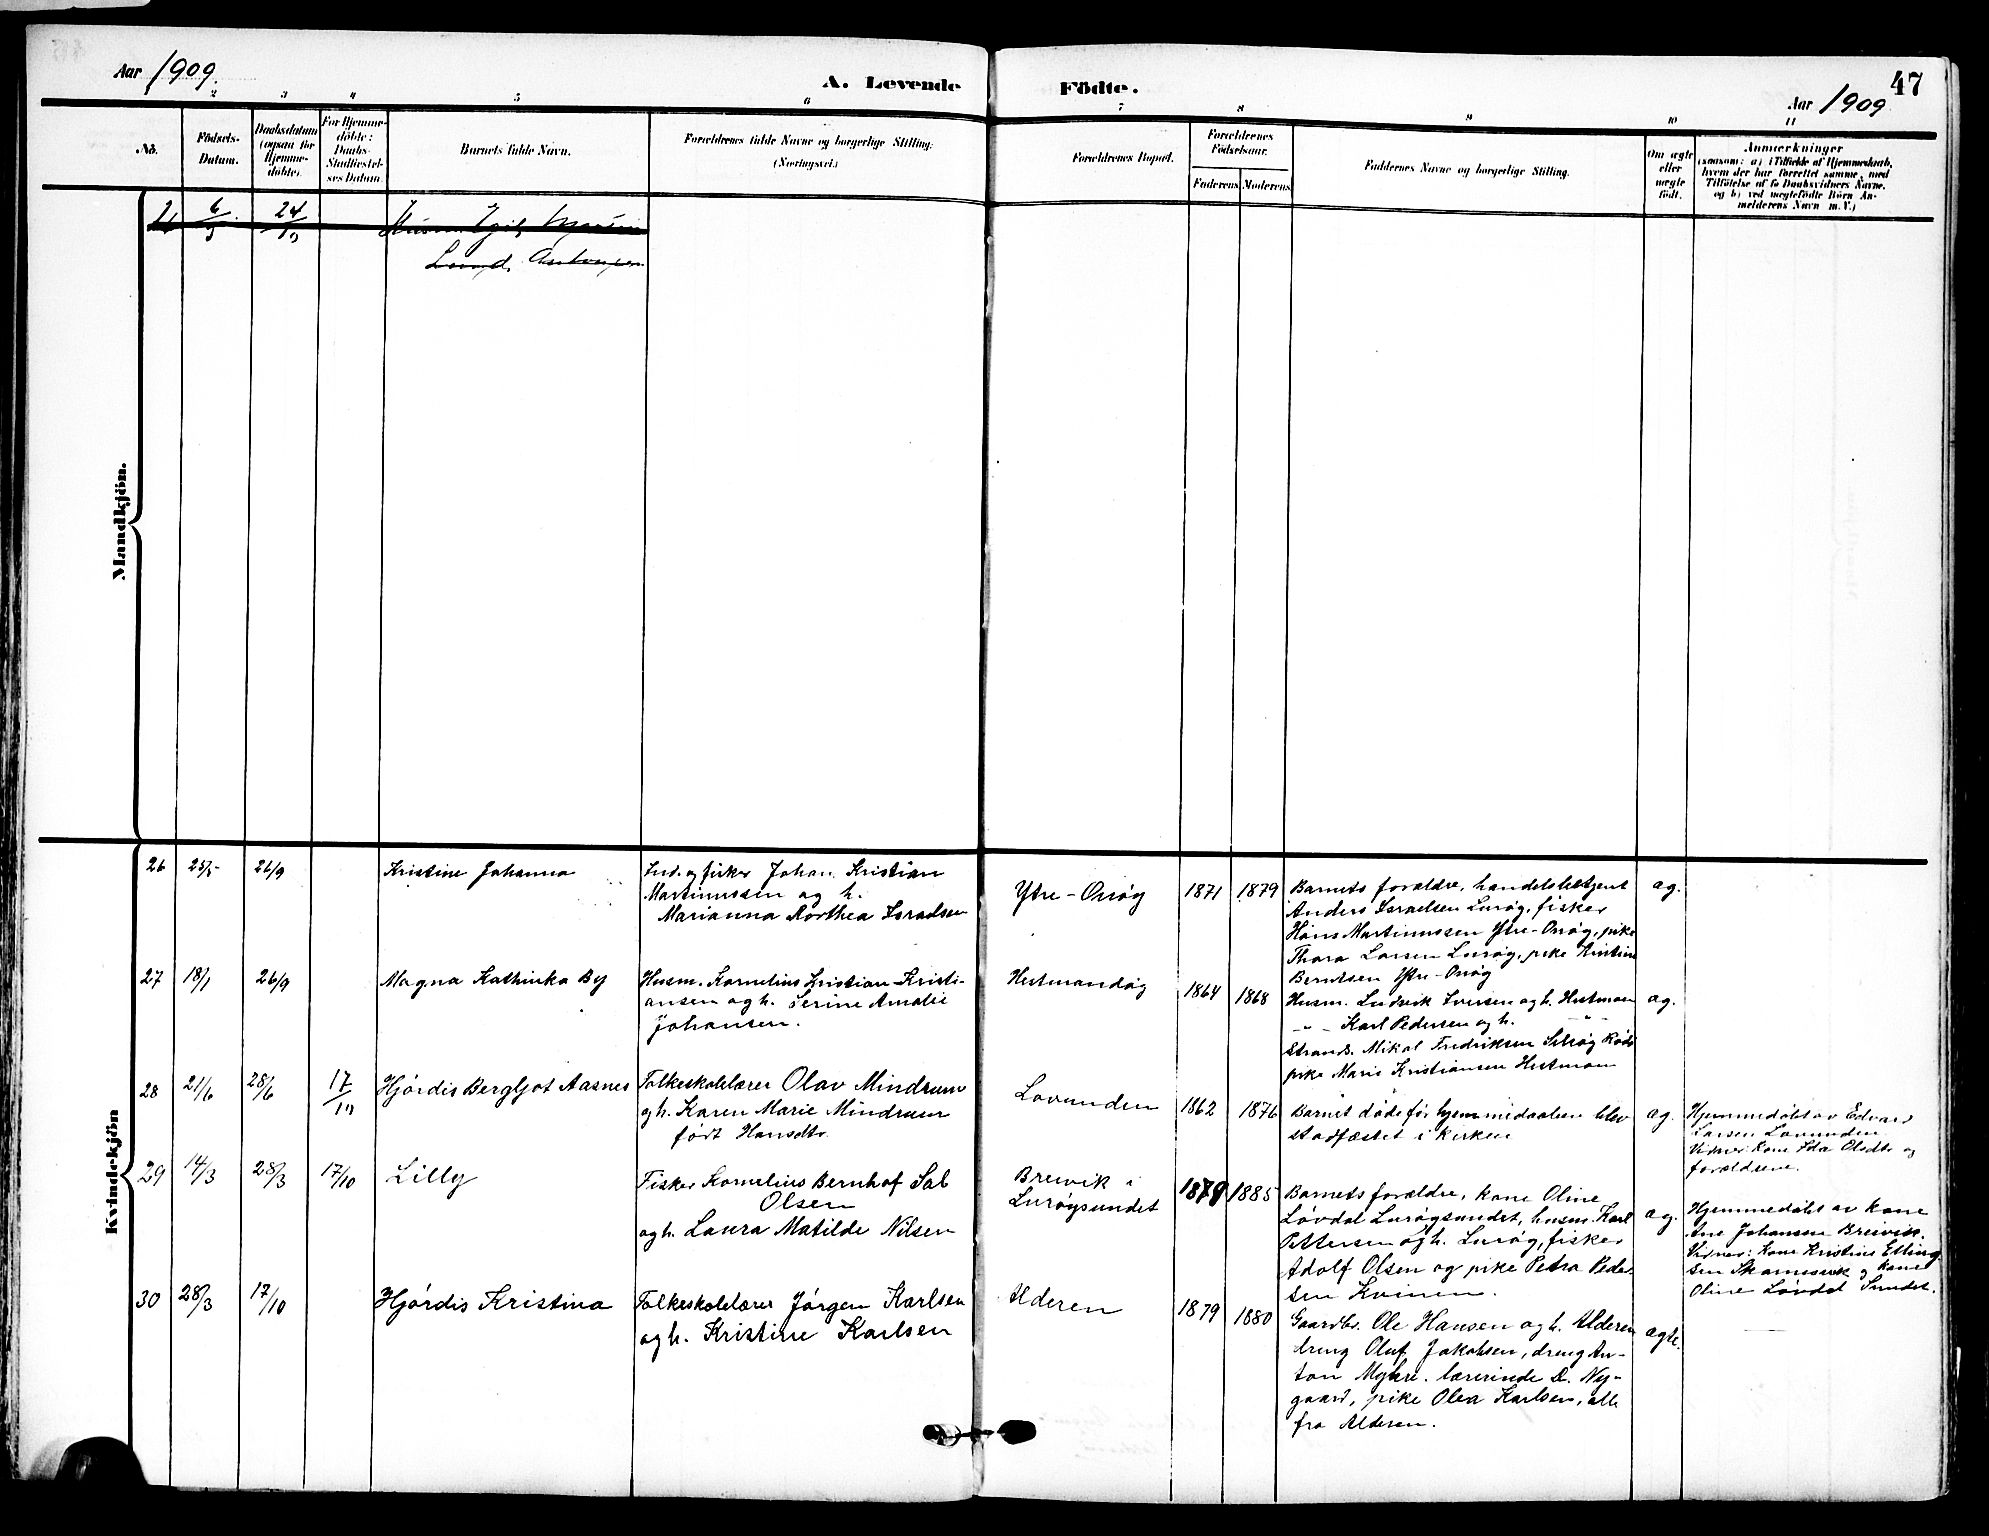 Aar 1909.
A. Levende
Födte.
47
Aar 1909
2 3 4 5 6 7 8 9 10 11
No.
Födsels-
Datum.
Daabsdatum
(ogsaa for
Hjemme-
döbte).
For Hjemme-
döbte:
Daabs-
Stadfæstel-
ses Datum.
Barnets fulde Navn.
Forældrenes fulde Navne og borgerlige Stilling;
(Næringsvei.)
Forældrenes Bopæl.
Forældrenes
Födselsaar.
Faderens Moderens
Faddernes Navne og borgerlige Stilling.
Om ægte
eller
uægte
født.
Anmærkninger
(saasom: a) i Tilfælde af Hjemmedaab,
hvem der har forrettet samme, med
Tilföielse af to Daabsvidners Navne,
og b) ved uægtefödte Börn An-
melderens Navn m. V.)
Mandkjön.
6/5 24/10 Egil
Lund. Antonsen
Kvindekjön
26 25/5 26/9 Kristine Johanna
Ind. og fisker Johan Kristian
Martinussen og h.
Marianna Dorthea Israelsen
Ytre-Onøy
1871 1879
Barnets forældre, handelsbetjent
Anders Israelsen Lurøy, fisker
Hans Martinussen Ytre-Onøy, pike
Thora Larsen Lurøy, pike Kristine
Berntsen Ytre-Onøy
æg.
27 18/1 26/9 Magna Kathinka By
Husm. Kornelius Kristian Kristi-
ansen og h. Serine Amalie
Johansen.
Hestmandøy
1864 1868
Husm. Ludvik Iversen og h. Hestmon
- " - Karl Pedersen og h. - " -
Strands. Mikal Fredriksen Selsøy
pike Maris Kristiansen Hestmon
æg.
28 21/6 28/6 17/10 Hjördis Bergljot Aasnes
Folkeskolelærer Olav Mindrum
og h. Karen Marie Mindrum
født Hansdtr.
Lovunden
1862 1876
Barnet døde før hjemmedaaben blev
stadfæstet i kirken
æg.
Hjemmedøbt av Edvard
Larsen Lovunden
Vidner: Kone Ida Olsdtr og
forældrene.
29 14/3 28/3 17/10 Lilly
Fisker Kornelius Bernhof Sal
Olsen
og h. Laura Matilde Nilsen
Breivik i
Lurøysundet
1879 1885
Barnets forældre, kone Oline
Løvdal Lurøysundet, husm. Karl
Pettersen og h. Lurøy, fisker
Adolf Olsen og pike Petra Peder-
sen Kvinen.
æg.
Hjemmedøbt av kone
Ane Johansen Breivik.
Vidner: Kone Kristine Elling
sen Skarnesvik og kone
Oline Løvdal Sundet.
30 28/3 17/10 Hjördis Kristina
Folkeskolelærer Jörgen Karlsen
og h. Kristine Karlsen
Alderen
1879 1880
Gaardbr. Ole Hansen og h. Alderen
dreng Oluf Jakobsen, dreng An-
ton Myhre, lærerinde D. Ny-
gaard, pike Olea Karlsen, alle
fra Alderen.
ægte.